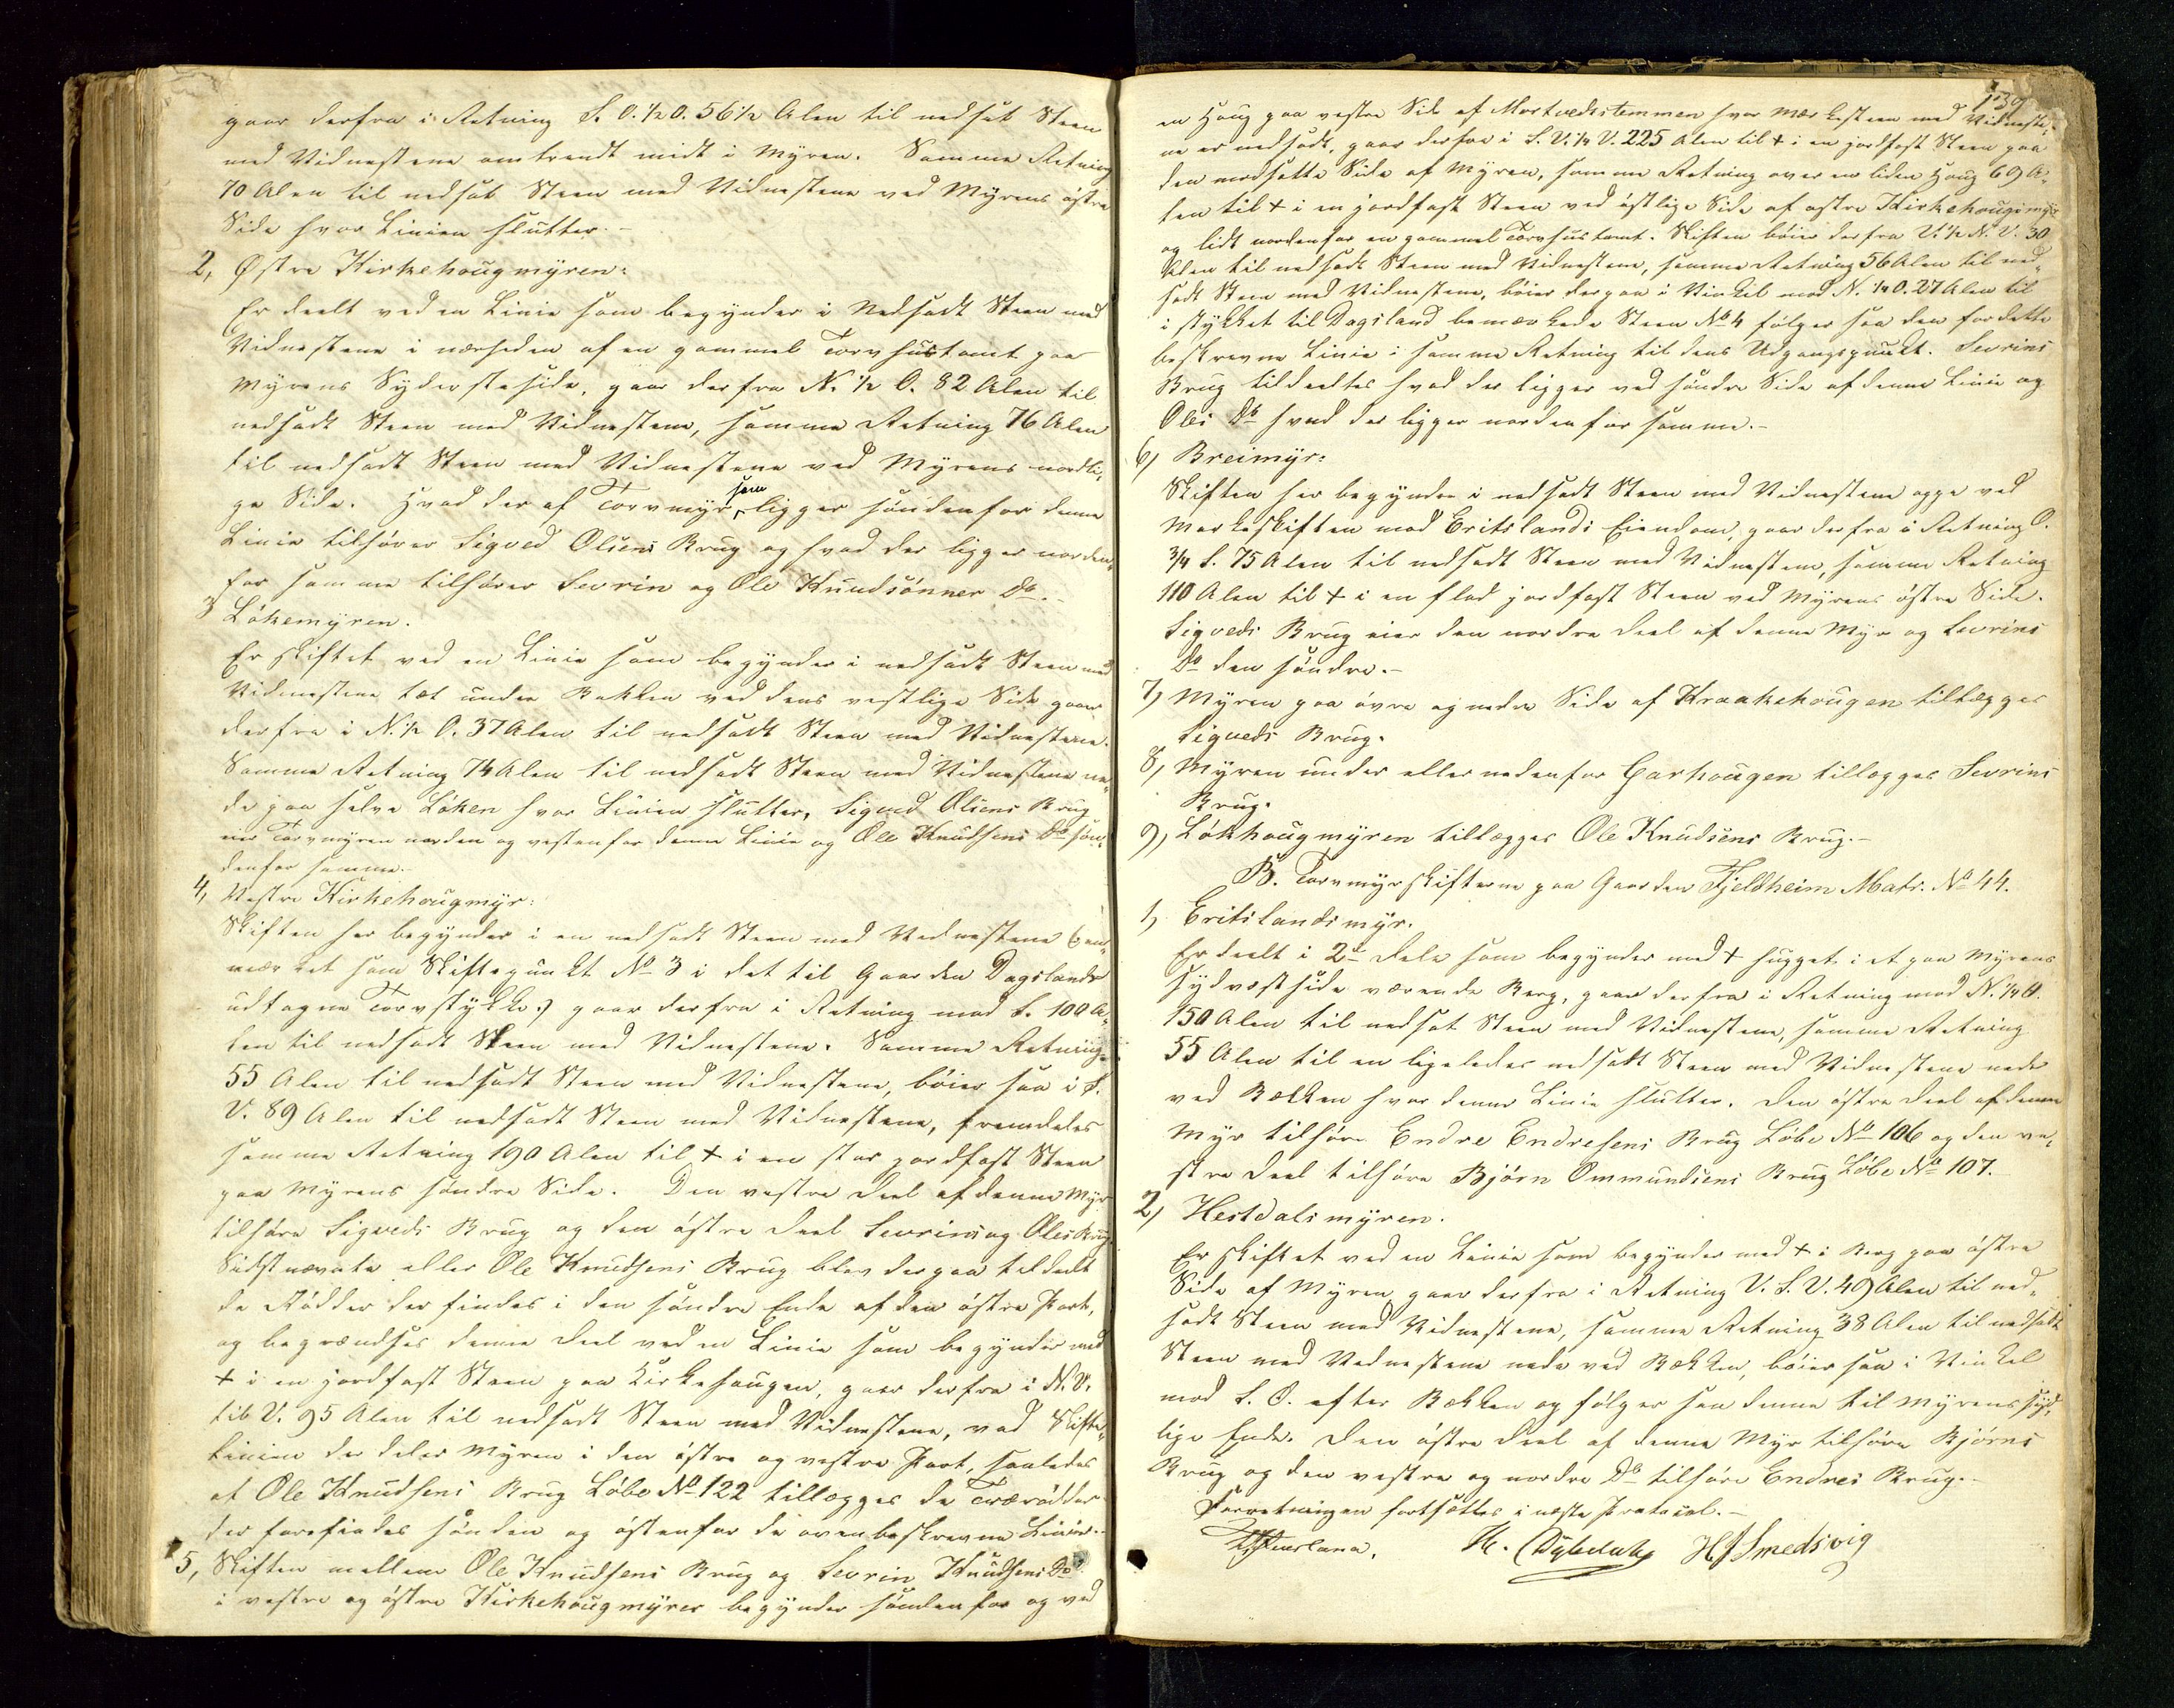 gaar derfra i Retning S. O. 1/2 O. 56 1/2 Alen til nedsat Steen
med Vidnestene omtrendt midt i Myren. Samme Retning
70 Alen til nedsat Steen med Vidnestene ved Myrens østre
Side hvor Linien slutter.-
2, Østre Kirkehougmyren:
Er deelt ved en Linie som begynder i Nedsadt Steen med
Vidnestene i nærheden af en gammel Torvhustomt paa
Myrens Sydersteside, gaar derfra N. 1/2 O. 82 Alen til
nedsadt Steen med Vidnestene, samme Retning 76 Alen
til nedsadt Steen med Vidnestene ved Myrens nordli„
ge Side. Hvad der af Torvmyr som ligger søndenfor denne
Linie tilhører Sigved Olsens Brug og hvad der ligger norden„
for samme tilhører Sevrin og Ole Knudsønner Do.-
3 Løkemyren.
Er skiftet ved en Linie som begynder i nedsadt Steen med
Vidnestene tæt under Bakken ved dens vestlige Side gaar
derfra i N. 1/2 O. 37 Alen til nedsadt Steen med Vidnestene.
Samme Retning 74 Alen til nedsadt Steen med Vidnestene ne„
de paa selve Løken hvor Linien slutter, Sigved Olsens Brug
eier Torvmyren norden og vestenfor denne Linie og Ole Knudsens Do søn„
denfor samme.-
4, Vestre Kirkehougmyr:
Skiften her begynder i en nedsadt Steen med Vidnestene (be„
mærket som Skiftepunkt No 3 i det til Gaarden Dagslands
udtagne Torvstykke:) gaar derfra i Retning mod S. 100 A„
len til nedsadt Steen med Vidnestene. Samme Retning
55 Alen til nedsadt Steen med Vidnestene, bøier saa i S.
V. 89 Alen til nedsadt Steen med Vidnestene, fremdeles
samme Retning 190 Alen til + i en stor jordfast Steen
paa Myrens søndre Side. Den vestre Deel af denne Myr
tilhøre Sigveds Brug og den østre Deel Sevrins og Oles Brug.
Sidstnævnte eller Ole Knudsens Brug blev derpaa tildeelt
de Rødder der findes i den søndre Ende af den østre Part,
og begrændses denne Deel ved en Linie som begynder med
+ i en jordfast Steen paa Kirkehougen, gaar derfra i N. V.
til V. 95 Alen til nedsadt Steen med Vidnestene, ved Skifte„
linien der deler Myren i den østre og vestre Part, saaledes
at Ole Knudsens Brug Løbe No 122 tillægges de Trærødder
der forefindes sønden og østenfor de ovenbeskrevne Linier.-
5, Skiften mellem Ole Knudsens Brug og Sevrin Knudsens Do
i vestre og østre Kirkehougmyrer begynder søndenfor og ved
139
en Houg paa vestre Side af Mortvedstemmen hvor Mærkesteen med Vidneste„
ne er nedsadt, gaar derfra i S. V. 1/4 V. 225 Alen til + i en jordfast Steen paa
den modsatte Side af Myren, samme Retning over en liden Houg 69 A„
len til + i en jordfast Steen ved østlige Side af østre Kirkehougsmyr
og lidt nordenfor en gammel Torvhustomt. Skiften bøier derfra V. 1/2 N. V. 30
Alen til nedsadt Steen med Vidnestene, samme Retning 56 Alen til ned„
sadt Steen med Vidnestene, bøier derpaa i Vinkel mod N. 1/4 O. 27 Alen til
i stykket til Dagsland bemærkede Steen No 4 følger saa den for dette
beskrevne Linie i samme Retning til dens Udgangspunkt. Sevrins
Brug tildeeltes hvad der ligger ved søndre Side af denne Linie og
Oles Do hvad der ligger nordenfor samme.-
6, Breimyr:
Skiften her begynder i nedsadt Steen med Vidnestene oppe ved
Markeskiften mod Eritslands Eiendom, gaar derfra i Retning O.
3/4 S. 75 Alen til nedsadt Steen med Vidnestene, samme Retning
110 Alen til + i en flad jordfast Steen ved Myrens østre Side.
Sigveds Brug eier den nordre Deel af denne Myr og Sevrins
Do den søndre.-
7, Myren paa øvre og nedre Side af Kraakehougen tillægges
Sigveds Brug.
8, Myren under eller nedenfor Garhougen tillægges Sevrins
Brug.
9, Løkhougmyren tillægges Ole Knudsens Brug.-
B. Torvmyrskifterne paa Gaarden Fjeldheim Matr. No 44.
1, Eritslandsmyr.
Er deelt i 2de Dele som begynder med + hugget i et paa Myrens
sydvestside værende Berg, gaar derfra i Retning mod N. 1/4 O.
150 Alen til nedsat Steen med Vidnestene, samme Retning
55 Alen til en ligeledes nedsatt Steen med Vidnestene nede
ved Bækken hvor denne Linie slutter. Den østre Deel af denne
Myr tilhøre Endre Endresens Brug Løbe No 106 og den ve„
stre Deel tilhøre Bjørn Ommundsens Brug Løbe No 107.
2, Hestdalsmyren.
Er skiftet ved en Linie som begynder med + i Berg paa østre
Side af Myren gaar derfra i Retning V. S. V. 49 Alen til ned„
sadt Steen med Vidnestene, samme Retning 38 Alen til nedsadt
Steen med Vednestene nede ved Bækken, bøier saa i Vinkel
mod S. O. efter Bækken og følger saa denne til Myrens syd„
lige Ende. Den østre Deel af denne Myr tilhøre Bjørns
Brug og den vestre og nordre Do tilhøre Endres Brug.-
Forretningen fortsættes i næste Protocol.-
H. H J Smedsvig